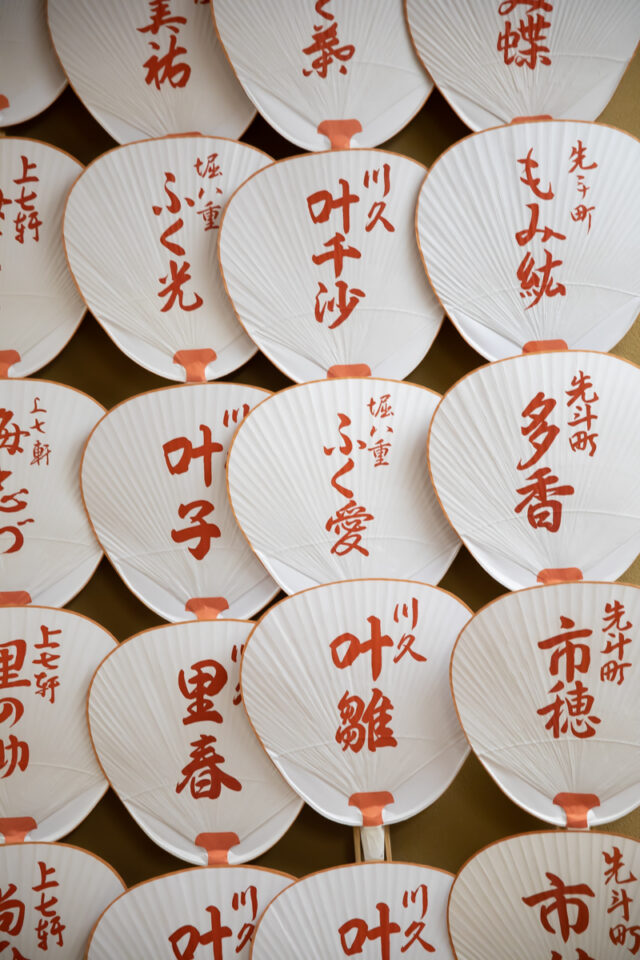 美祐
く
蝶
上七軒
堀八重
ふく光
川久
叶千沙
先斗町
もみ紘
上七軒
川
叶子
堀八重
ふく愛
先斗町
多香
上七軒
里の助
里春
川久
叶雛
先斗町
市穂
上七軒
尚
川久
叶
川久
叶
先斗町
市